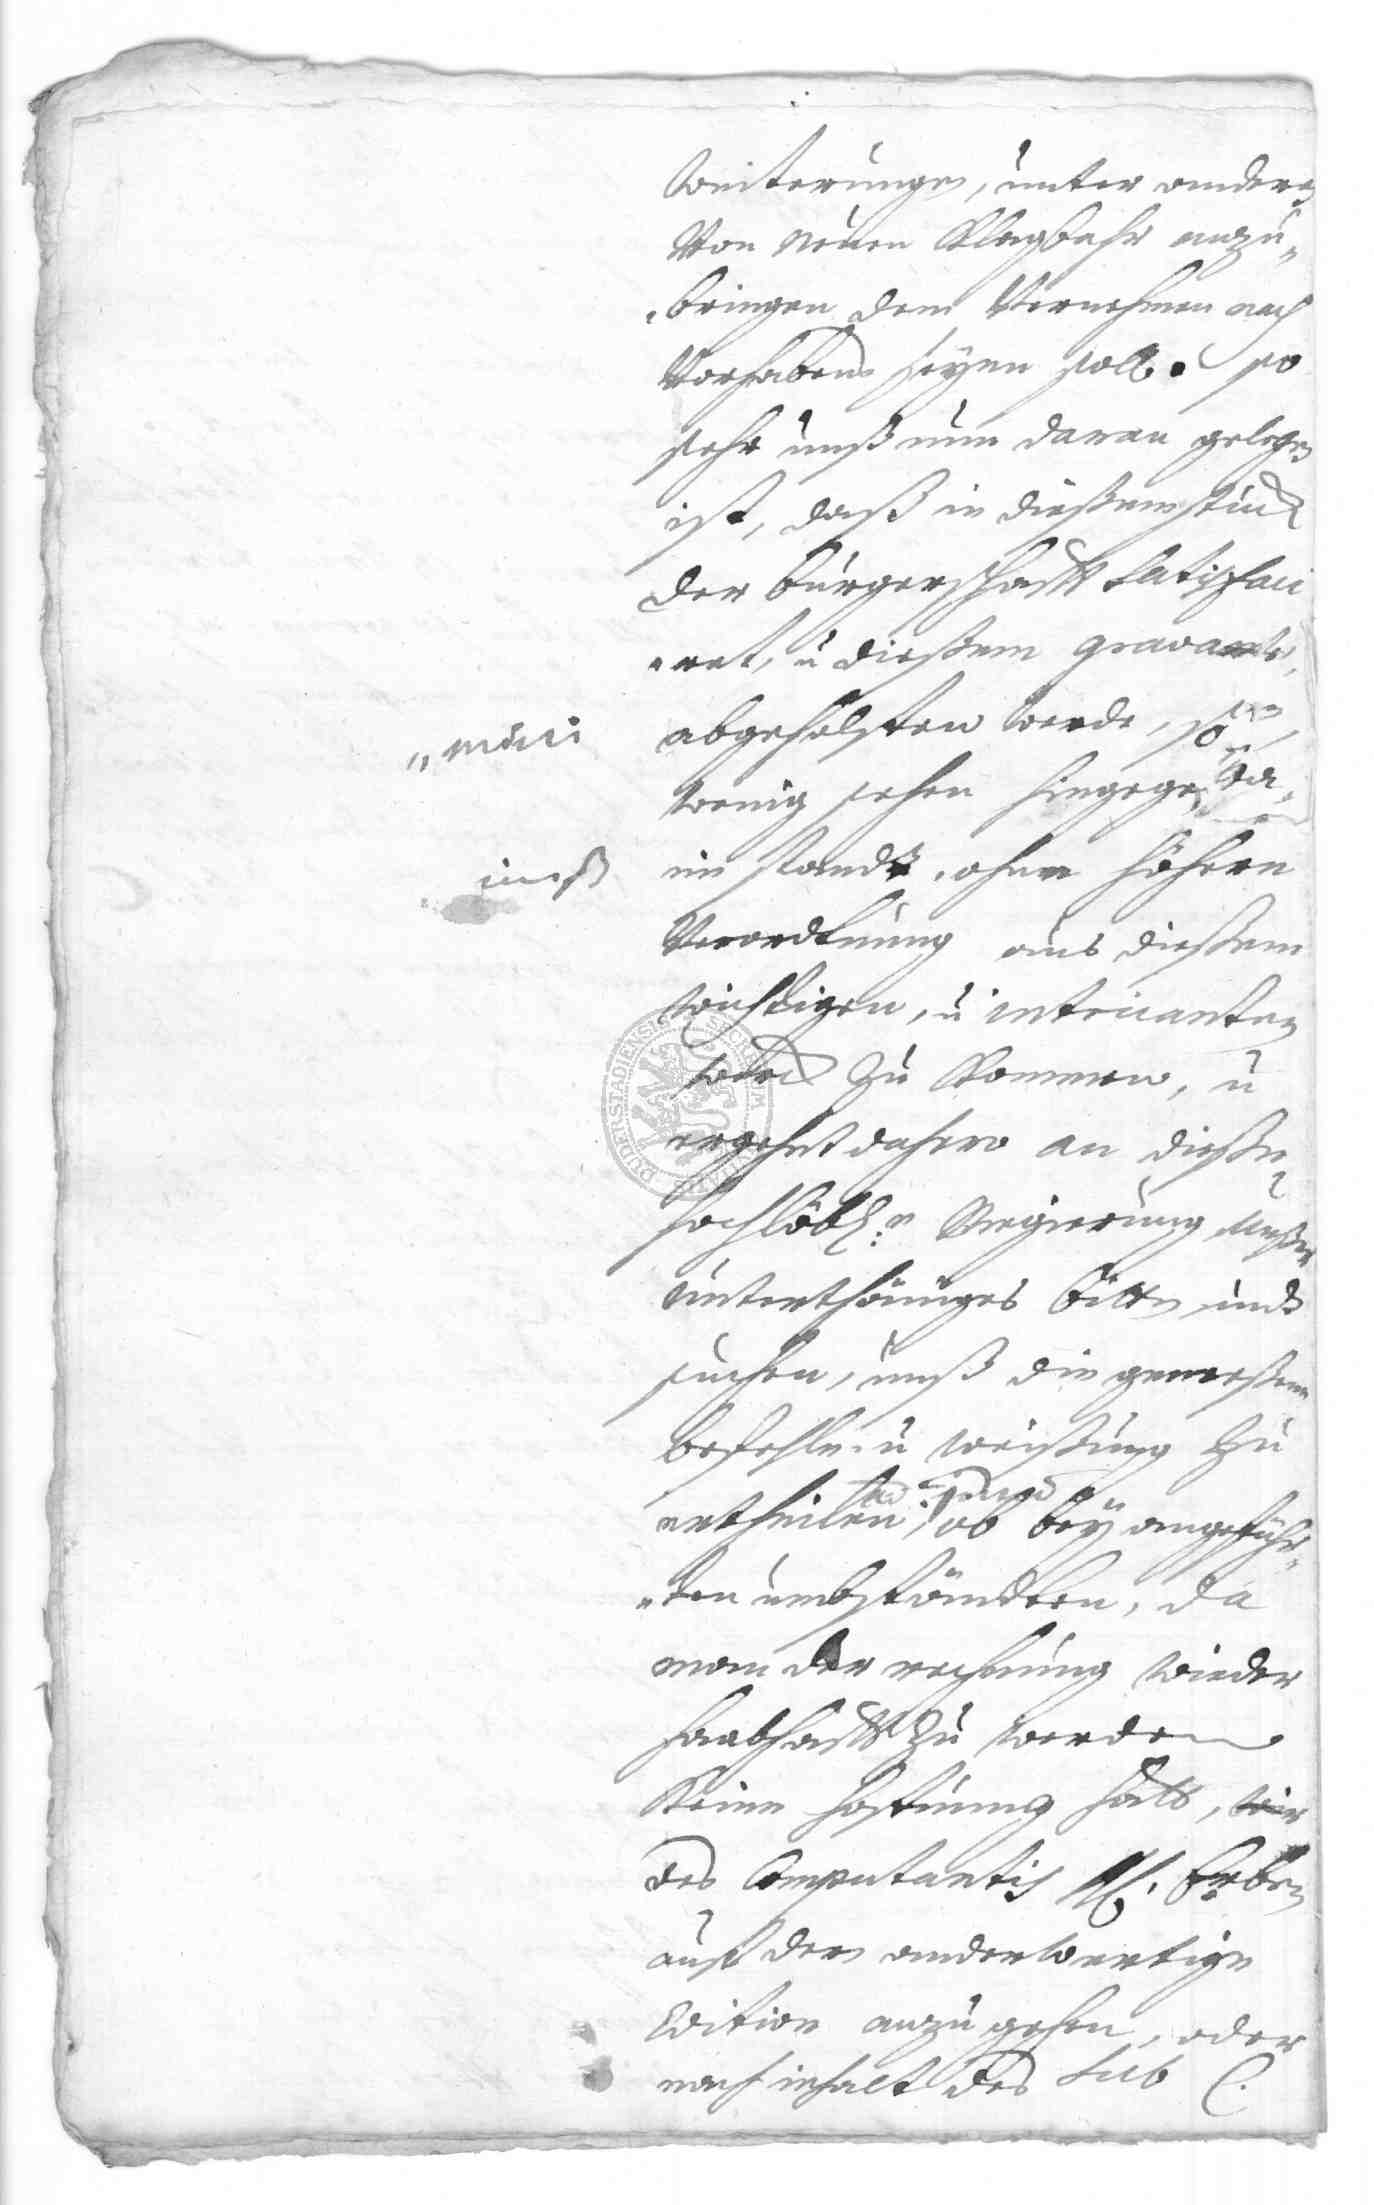 weiterungen, unter andern
von neüen Klagbahr anzu-
bringen dem vernehmen nach
vorhabens seyen soll. so
sehr unß nun daran gelegen
ist, daß in dießem stück
der bürgerschafft satisfaci
ret, u dießem gravam
abgeholffen werde, so
wenig sehen hingegen
unß
im stande, ohne höhere
verordtnung aus dießem
wichtigen, u intricanten
zu Kommen, u
ergehet dahero an dieße
hochlöbl: Regierung unßer
unterthäniges bitten undt
suchen, unß die gemeßene
befehle u weißung zu
ertheilen, ob bey angeführ-
ten umbständen, da
man der rechnung wieder
haabhafft zu werden
Keine hoffnung hatt, wir
des Computantis Erben
auf den anderwertige
Edition anzugehen, oder
nach inhalt des sub C.
DUDERSTADIENSIS